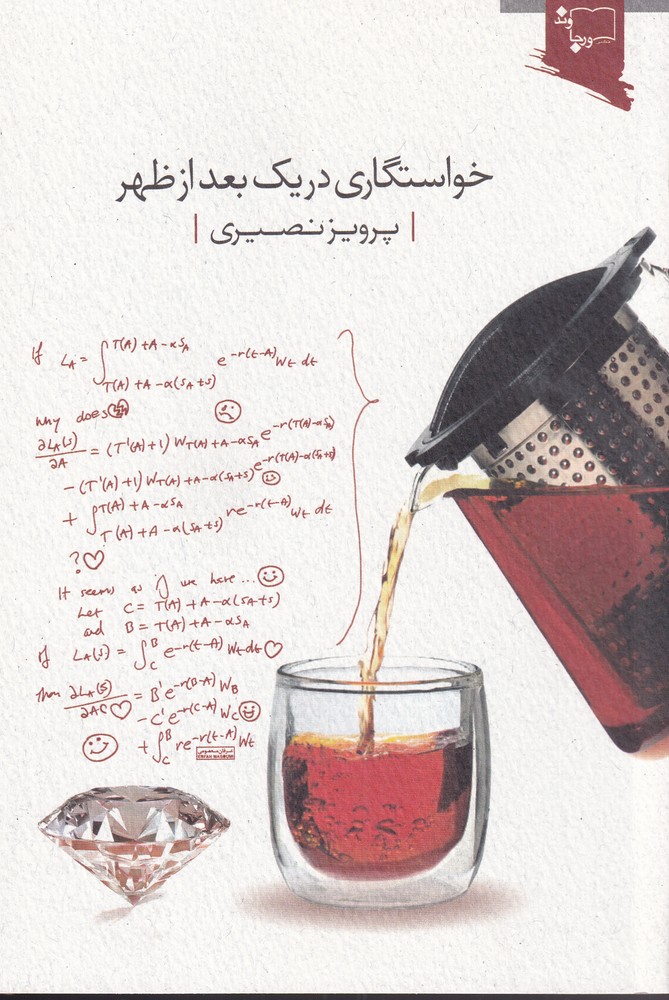 ورجاوند
خواستگاری در یک بعد از ظهر
| پرویز نصیری |
If L_A = ∫ T(A)+A-αS_A e^-r(t-A) W_t dt
T(A)+A-α(S_A+S)
why does
∂L_A(S)/∂A = (T'(A)+1) W_T(A)+A-αS_A e^-r(T(A)-αS_A)
-(T'(A)+1) W_T(A)+A-α(S_A+S) e^-r(T(A)-α(S_A+S))
+ ∫ T(A)+A-αS_A re^-r(t-A) W_t dt
T(A)+A-α(S_A+S)
?
It seems as if we have...
Let C = T(A)+A-α(S_A+S)
and B = T(A)+A-αS_A
If L_A(S) = ∫_C^B e^-r(t-A) W_t dt
Then ∂L_A(S)/∂A = B'e^-r(B-A) W_B
-C'e^-r(C-A) W_C
+ ∫_C^B re^-r(t-A) W_t
عرفان معصومی
ERFAN MASOUMI